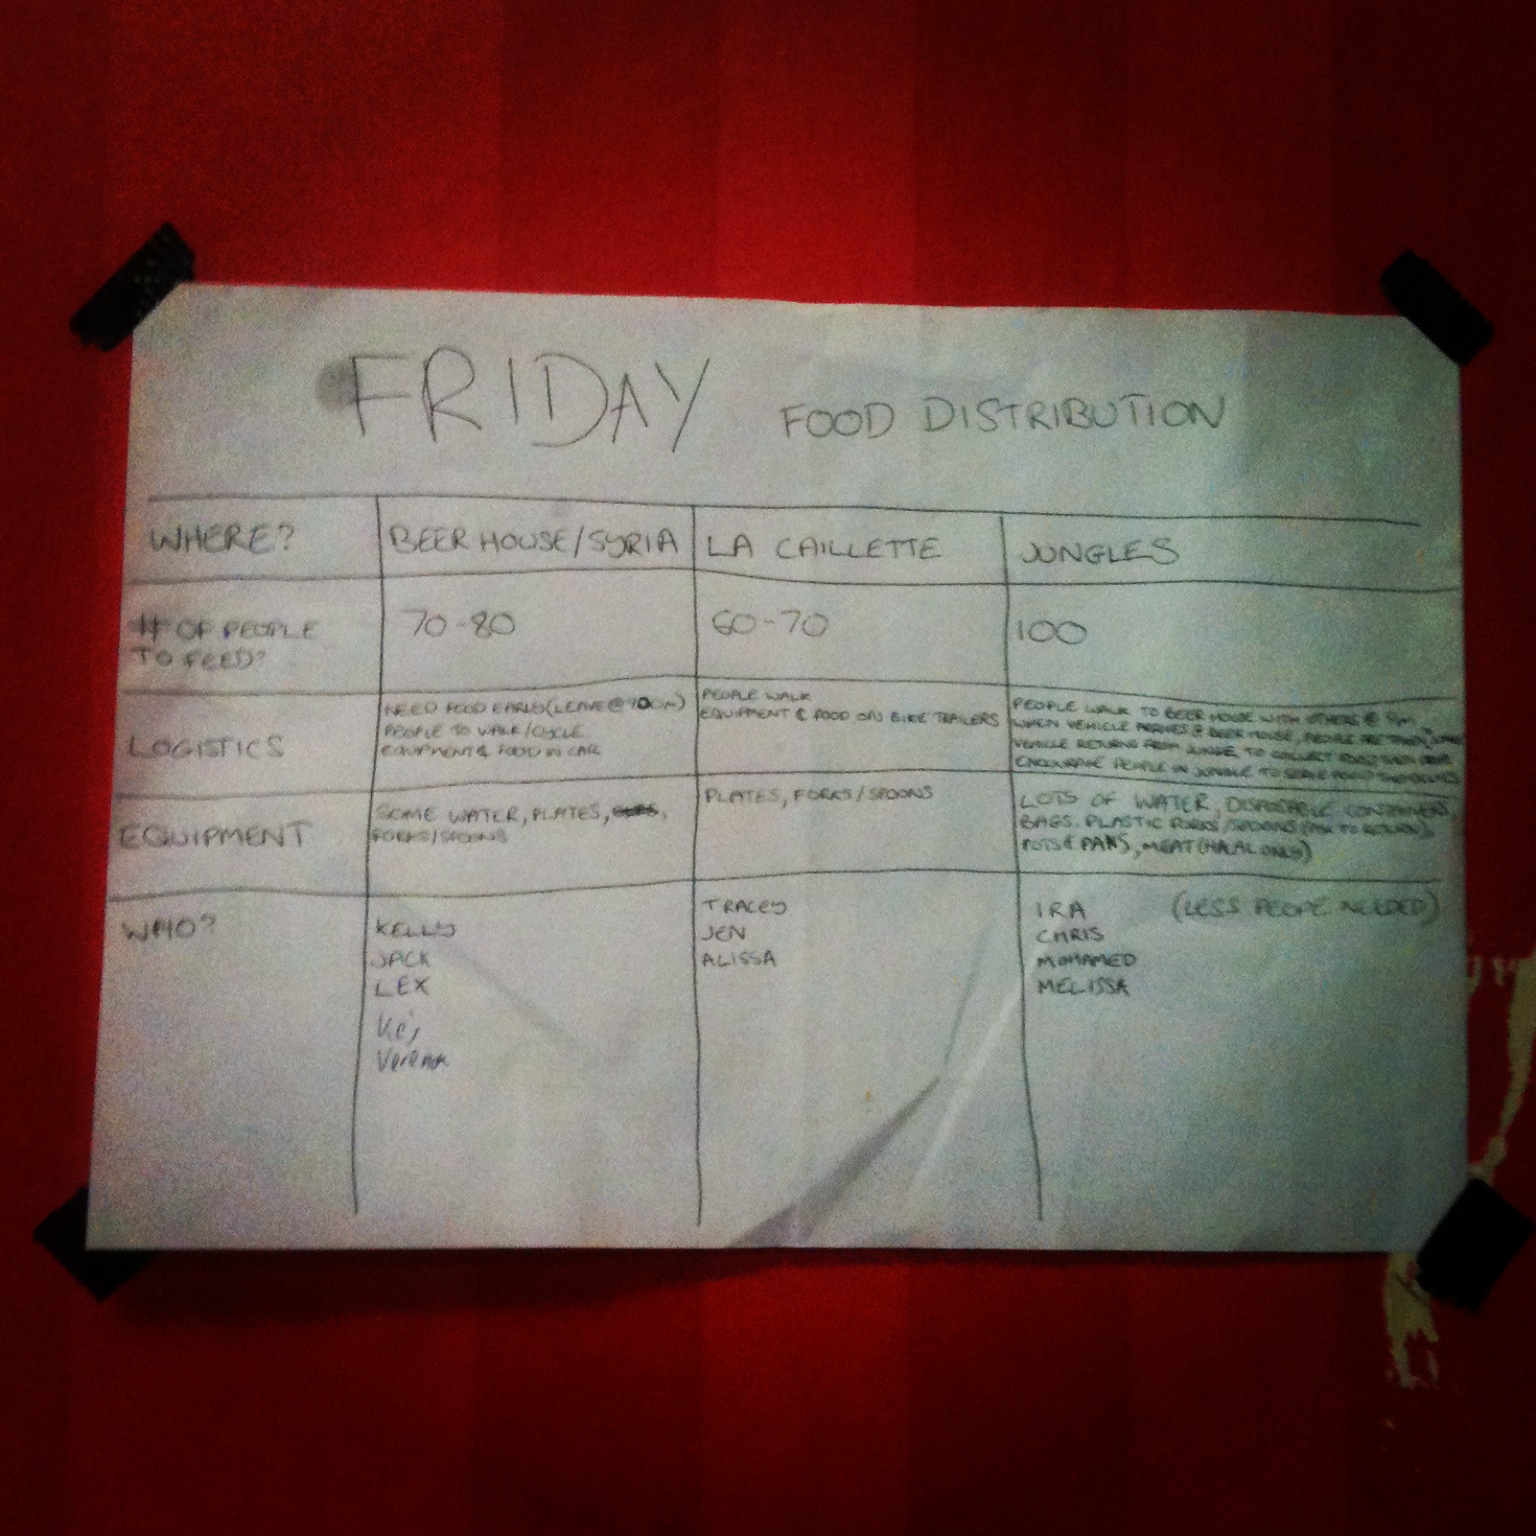 FRIDAY FOOD DISTRIBUTION
WHERE? BEER HOUSE/SYRIA LA CAILLETTE JUNGLES
# OF PEOPLE
TO FEED?
70-80
60-70
100
LOGISTICS
NEED FOOD EARLY (LEAVE @
PEOPLE TO WALK/CYCLE
EQUIPMENT & FOOD IN CAR
PEOPLE WALK
EQUIPMENT & FOOD ON BIKE TRAILERS
PEOPLE WALK TO BEER HOUSE WITH OTHERS @
WHEN VEHICLE ARRIVES @ BEER HOUSE, PEOPLE ARE TAKEN
VEHICLE RETURNS FROM JUNGLE TO COLLECT FOOD THEN
ENCOURAGE PEOPLE IN JUNGLE TO SERVE FOOD THEMSELVES
EQUIPMENT
SOME WATER, PLATES,
FORKS/SPOONS
PLATES, FORKS/SPOONS
LOTS OF WATER, DISPOSABLE CONTAINERS,
BAGS, PLASTIC FORKS/SPOONS (ASK TO RETURN),
POTS & PANS, MEAT (HALAL ONLY)
WHO?
KELLY
JACK
LEX
Verena
TRACEY
JEN
ALISSA
IRA (LESS PEOPE NEEDED)
CHRIS
MOHAMED
MELISSA